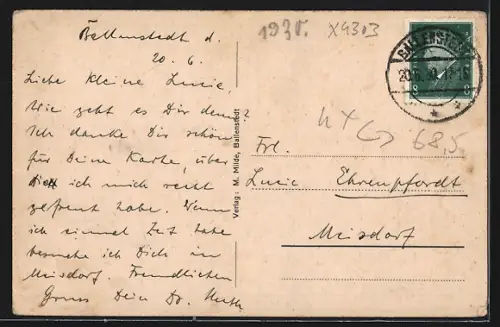 Ballenstedt d.
20.6.
Liebe kleine Lucie,
Wie geht es Dir denn?
Ich danke Dir schön
für Deine Karte, über
die ich mich recht
gefreut habe. Wenn
ich einmal Zeit habe
besuche ich Dich in
Meisdorf. Freundlichen
Gruss Dein Dr.
Verlag: M. Milde, Ballenstedt
1930. X4303
BALLENSTEDT
20.6.30
8 8
68,5
Frl.
Lucie Ehrenpfordt
Meisdorf